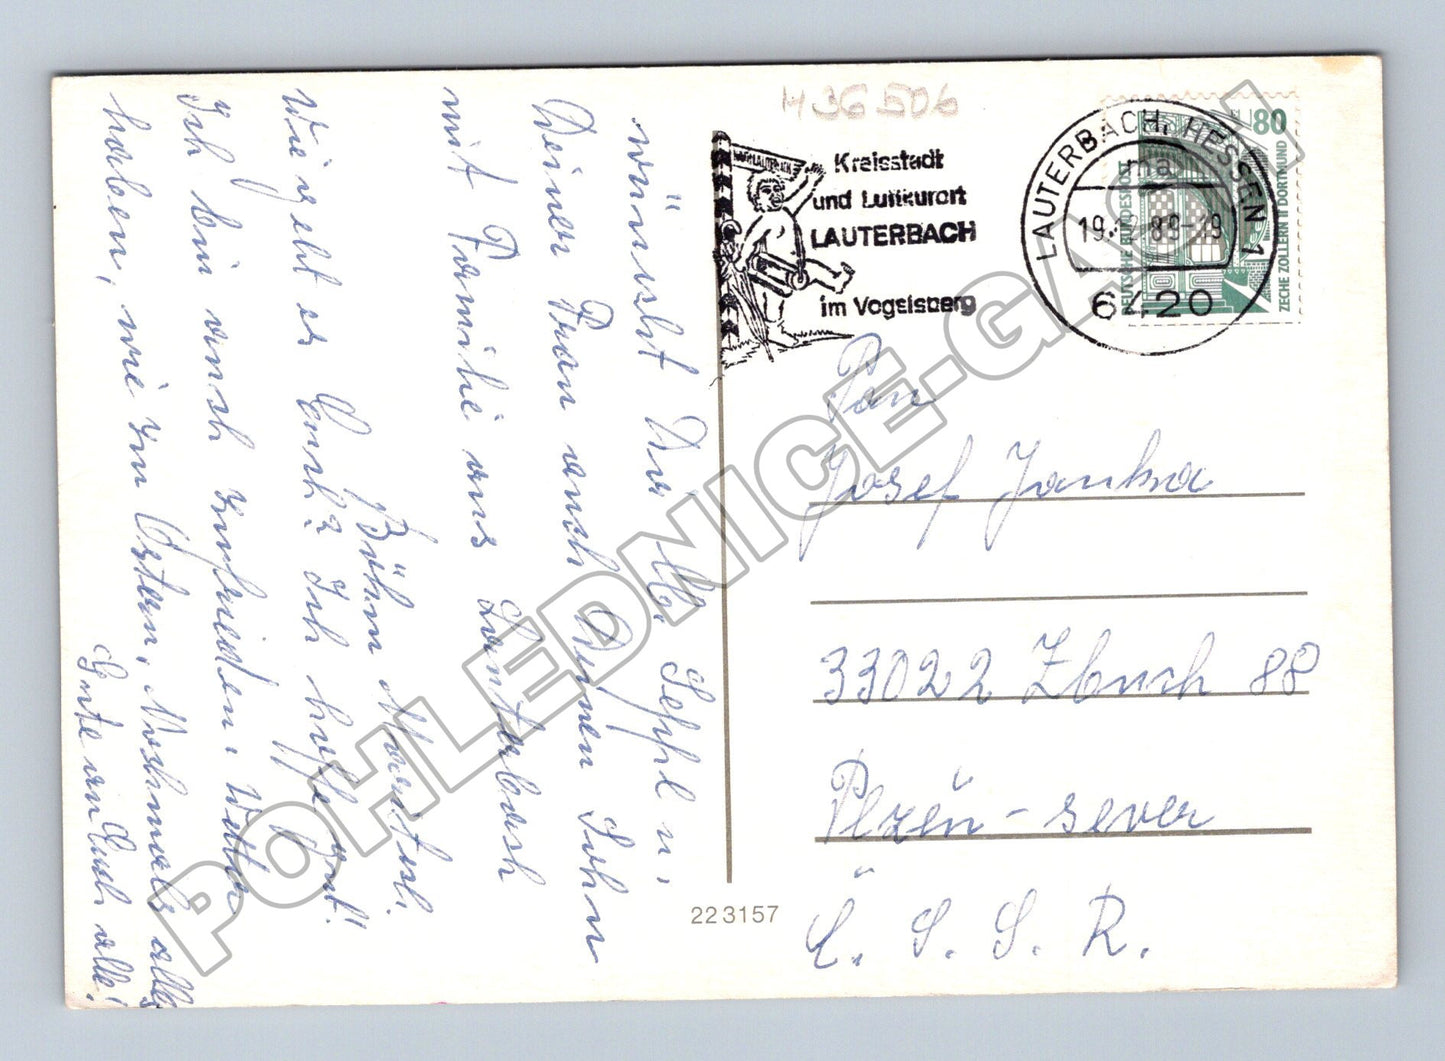 M 36506
Kreisstadt
und Luftkurort
LAUTERBACH
im Vogelsberg
LAUTERBACH, HESSEN 1
ma
6420
80
DEUTSCHE BUNDESPOST
ZECHE ZOLLERN II DORTMUND
Pan
Josef Janka
33022 Zbuch 88
Plzěn-sever
Č. S. S. R.
22 3157
wünscht Dir lb. Seppl u.
Deiner Frau auch Deinen Sohn
mit Familie aus Lauterbach
Böhm Martel.
Wie geht es Euch? Ich hoffe gut!
Ich bin auch zufrieden. Wetter
haben, wie zu Ostern. Nochmals alles
Gute an Euch alle!
POHLEDNICE-GASCH